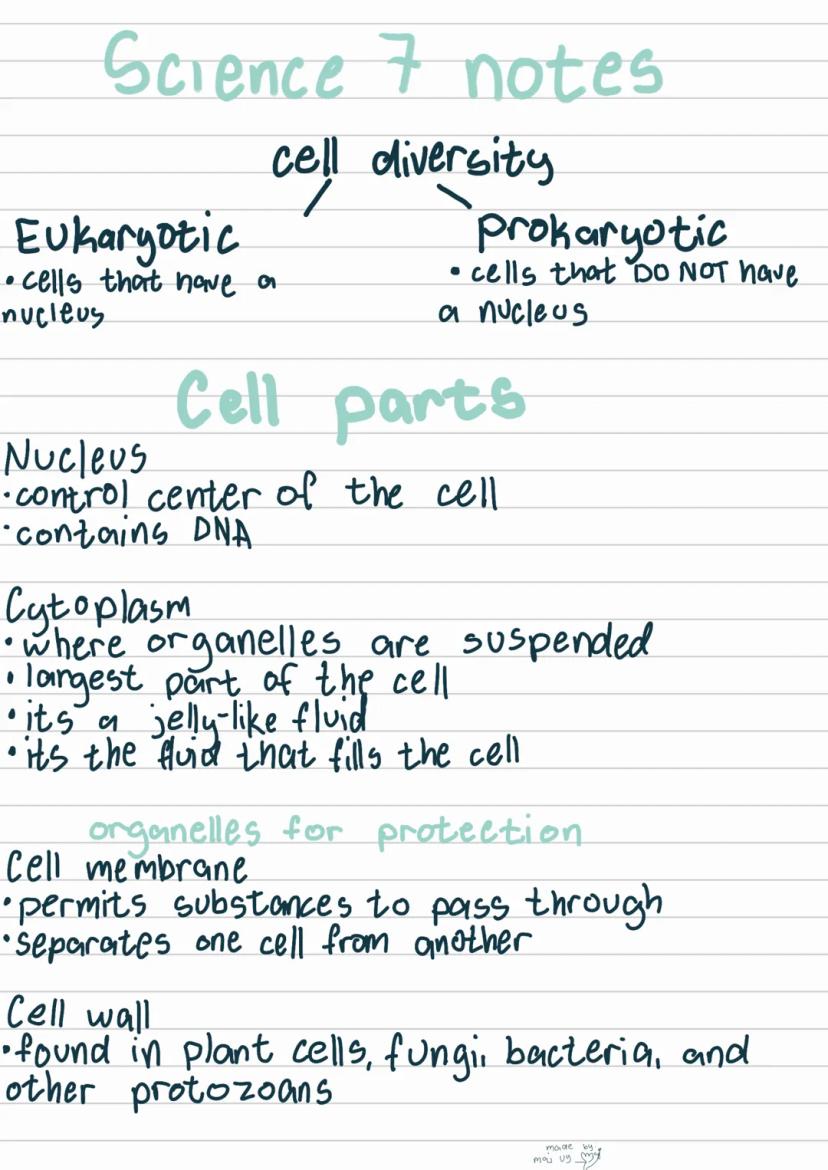 Science 7 notes
cell diversity
Eukaryotic
• cells that have a
nucleus
Prokaryotic
• cells that DO NOT have
a nucleus
Cell parts
Nucleus
•control center of the cell
•contains DNA
Cytoplasm
•where organelles are suspended
•largest part of the cell
•its a jelly-like fluid
•its the fluid that fills the cell
organelles for protection
Cell membrane
•permits substances to pass through
•separates one cell from another
Cell wall
•found in plant cells, fungi, bacteria, and
other protozoans
made by